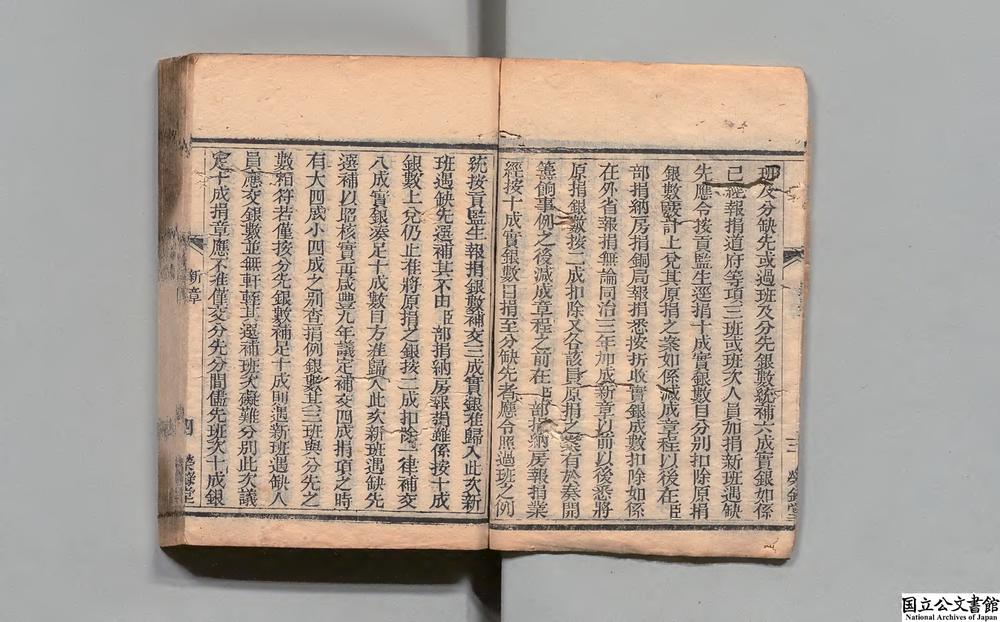 班及分缺先或過班及分先銀數統補六成實銀如係
已經報捐道府等項三班或班次人員加捐新班遇缺
先應令按貢監生逕捐十成實銀數目分别扣除原捐
銀數覈計上兌其原捐之案如係減成章程以後在臣
部捐納房捐銅局報捐悉按折收實銀成數扣除如係
在外省報捐無論同治三年加成新章以前以後悉將
原捐銀數按二成扣除又各該員原捐之案有於奏開
籌餉事例之後減成章程之前在臣部捐納房報捐業
經按十成實銀數目捐至分缺先者應令照過班之例
統按貢監生報捐銀數補交三成實銀准歸入此次新
班遇缺先選補其不由臣部捐納房報捐雖係按十成
銀數上兌仍止准將原捐之銀按二成扣除一律補交
八成實銀湊足十成數目方准歸入此次新班遇缺先
選補以昭核實再咸豐九年議定補交四成捐項之時
有大四成小四成之别查捐例銀數其三班與分先之
數相符若僅按分先銀數補足十成則遇新班遇缺人
員應交銀數並無軒輊其選補班次礙難分别此次議
定十成捐章應不准僅交分先分間儘先班次十成銀
新章
四
榮錄堂
三
榮錄堂
国立公文書館
National Archives of Japan